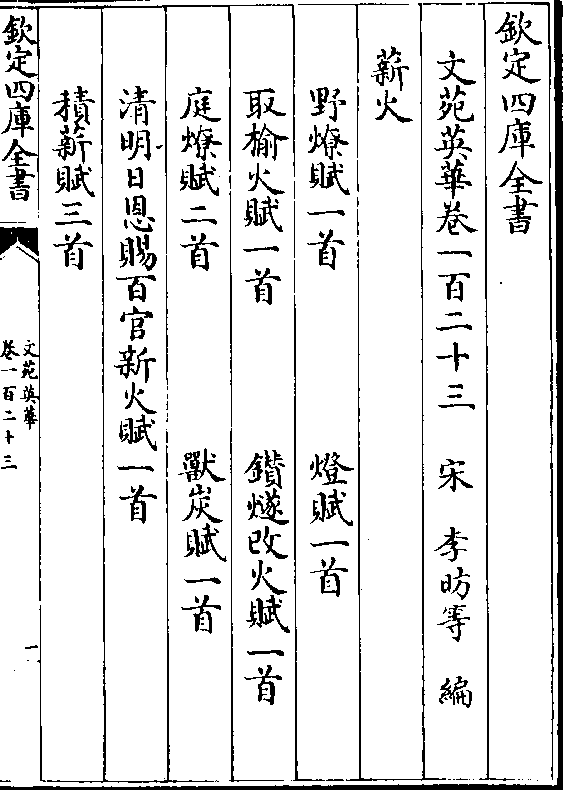 欽定四庫全書
文苑英華卷一百二十三 宋 李昉等 編
薪火
野燎賦一首 燈賦一首
取榆火賦一首 鑚燧改火賦一首
庭燎賦二首 獸炭賦一首
清明日恩賜百官新火賦一首
積薪賦三首
欽定四庫全書
文苑英華
卷一百二十三
一